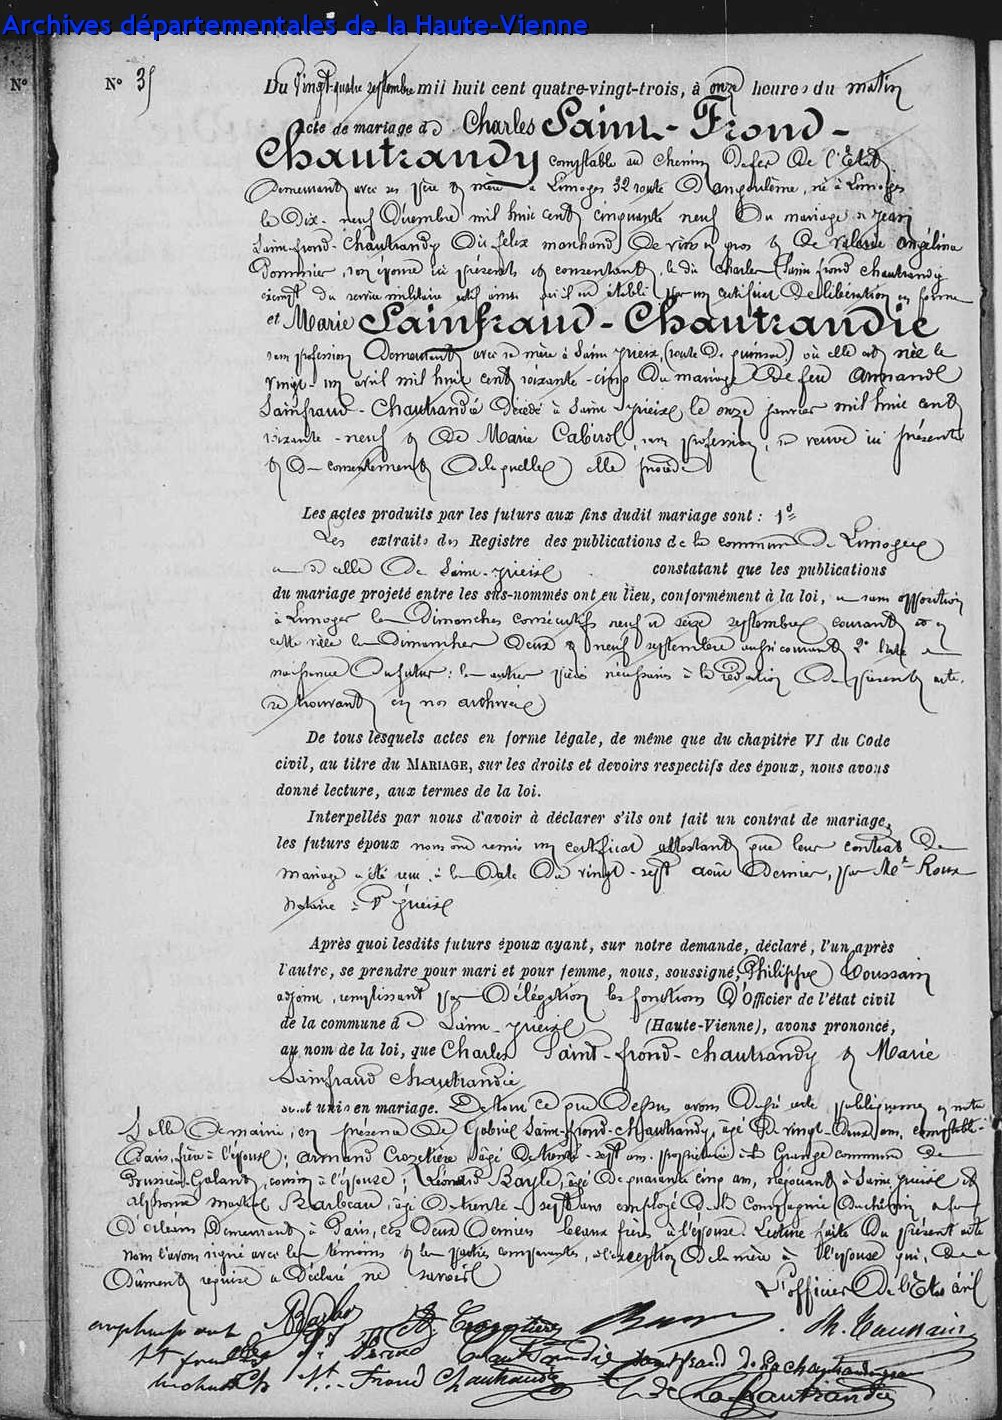 Archives départementales de la Haute-Vienne
N°
N° 35
Du vingt-quatre septembre mil huit cent quatre-vingt-trois, à onze heures du matin
Acte de mariage de Charles Saint-Frond-
Chautrandy comptable au chemin de fer de l'État
demeurant avec ses père et mère à Limoges 32 route d'Angoulême, né à Limoges
le dix-neuf décembre mil huit cent cinquante neuf du mariage de Jean
Saint-frond-Chautrandy dit felix marchand de vins en gros et de Valerie Angélina
son épouse ici présents et consentant, le dit Charles Saint frond chautrandy
exempt du service militaire actif ainsi qu'il est établi par un certificat de libération en forme
et Marie Sainfraud-Chautrandie
sans profession demeurant avec sa mère à Saint-Yrieix, (route de ) où elle est née le
vingt-un avril mil huit cent soixante-cinq du mariage de feu Armand
Sainfraud-Chautrandie décédé à Saint-Yrieix le onze janvier mil huit cent
soixante-neuf et de Marie Cabirol, sans profession, sa veuve ici présente
et du consentement de laquelle elle procède
Les actes produits par les futurs aux fins dudit mariage sont : 1°
Les extraits des Registre des publications de la commune de Limoges
et de celle de Saint-Yrieix constatant que les publications
du mariage projeté entre les sus-nommés ont eu lieu, conformément à la loi, et sans opposition
à Limoges les Dimanches consécutifs neuf et seize septembre courant et en
cette ville les Dimanches deux et neuf septembre aussi courant 2° l'acte de
naissance du futur : les autres pièces nécessaires à la rédaction du présent acte
se trouvant en nos archives
De tous lesquels actes en forme légale, de même que du chapitre VI du Code
civil, au titre du MARIAGE, sur les droits et devoirs respectifs des époux, nous avons
donné lecture, aux termes de la loi.
Interpellés par nous d'avoir à déclarer s'ils ont fait un contrat de mariage,
les futurs époux nous ont remis un certificat attestant que leur contrat de
mariage a été reçu à la date du vingt-sept août dernier, par Me Roux
Notaire à St Yrieix
Après quoi lesdits futurs époux ayant, sur notre demande, déclaré, l'un après
l'autre, se prendre pour mari et pour femme, nous, soussigné, Philippe Toussain
adjoint, remplissant par délégation les fonctions d'Officier de l'état civil
de la commune de Saint-Yrieix (Haute-Vienne), avons prononcé,
au nom de la loi, que Charles Saint-frond-chautrandy et Marie
Sainfraud Chautrandie
sont unis en mariage. De tout ce que dessus avons dressé acte publiquement en notre
salle de mairie, en présence de Gabriel Saint-frond-Chautrandy, âgé de vingt-deux ans, comptable
à Paris, frère à l'époux ; Armand Crozetière âgé de trente-sept ans propriétaire à la Grange commune de
Bussière-Galant, cousin à l'épouse ; Léonard Bayle, âgé de quarante cinq ans, négociant à Saint Yrieix et
Alphonse Martial Barbeau, âgé de trente-sept ans employé de la Compagnie du chemin de fer
d'Orléans, demeurant à Paris, ces deux derniers beaux frères à l'épouse. Lecture faite du présent acte
nous l'avons signé avec les témoins et les parties comparantes, à l'exception de la mère de l'épouse qui, de ce
dûment requise a déclaré ne savoir
L'officier de l'État civil
Ph. Toussain
St. Frond Chautrandy
de La Chautrandie